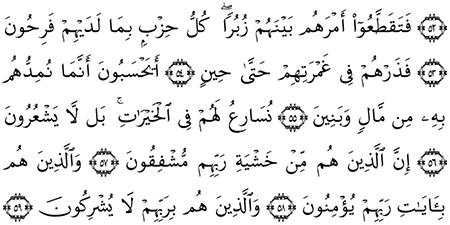 ﴿٥٢﴾ فَتَقَطَّعُوٓا۟ أَمْرَهُم بَيْنَهُمْ زُبُرًا ۖ كُلُّ حِزْبٍۭ بِمَا لَدَيْهِمْ فَرِحُونَ
﴿٥٣﴾ فَذَرْهُمْ فِى غَمْرَتِهِمْ حَتَّىٰ حِينٍ ﴿٥٤﴾ أَيَحْسَبُونَ أَنَّمَا نُمِدُّهُم
بِهِۦ مِن مَّالٍ وَبَنِينَ ﴿٥٥﴾ نُسَارِعُ لَهُمْ فِى ٱلْخَيْرَٰتِ ۚ بَل لَّا يَشْعُرُونَ
﴿٥٦﴾ إِنَّ ٱلَّذِينَ هُم مِّنْ خَشْيَةِ رَبِّهِم مُّشْفِقُونَ ﴿٥٧﴾ وَٱلَّذِينَ هُم
بِـَٔايَٰتِ رَبِّهِمْ يُؤْمِنُونَ ﴿٥٨﴾ وَٱلَّذِينَ هُم بِرَبِّهِمْ لَا يُشْرِكُونَ ﴿٥٩﴾